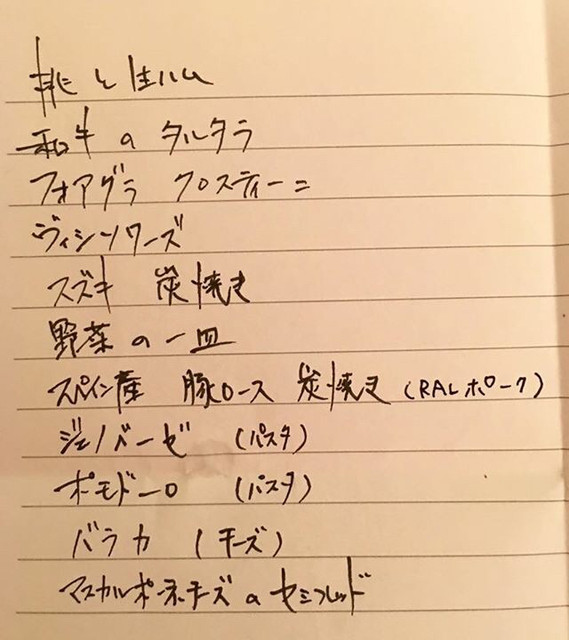 桃と生ハム
和牛のタルタラ
フォアグラ クロスティーニ
ヴィシソワーズ
スズキ 炭焼き
野菜の一皿
スペイン産 豚ロース 炭焼き (RALポーク)
ジェノバーゼ (パスタ)
ポモドーロ (パスタ)
バラカ (チーズ)
マスカルポーネチーズのセミフレッド